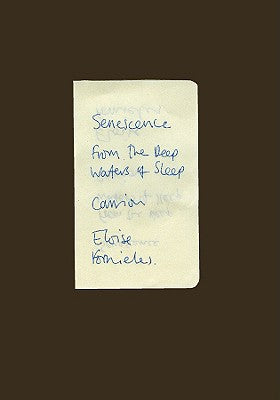 Senescence
from the Deep
Waters of Sleep
Carrion
Eloise
Fornieles.